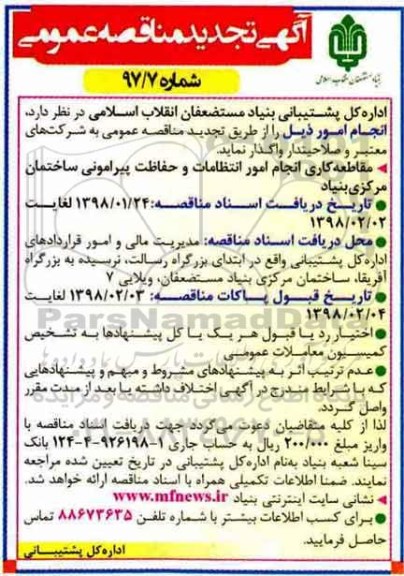 آگهی تجدید مناقصه عمومی
بنیاد مستضعفان انقلاب اسلامی
شماره ۹۷/۷
اداره کل پشتیبانی بنیاد مستضعفان انقلاب اسلامی در نظر دارد،
انجام امور ذیل را از طریق تجدید مناقصه عمومی به شرکت‌های
معتبر و صلاحیتدار واگذار نماید.
◄ مقاطعه‌کاری انجام امور انتظامات و حفاظت پیرامونی ساختمان
مرکزی بنیاد
● تاریخ دریافت اسناد مناقصه: ۱۳۹۸/۰۱/۲۴ لغایت
۱۳۹۸/۰۲/۰۲
● محل دریافت اسناد مناقصه: مدیریت مالی و امور قراردادهای
اداره کل پشتیبانی واقع در ابتدای بزرگراه رسالت، نرسیده به بزرگراه
آفریقا، ساختمان مرکزی بنیاد مستضعفان، ویلایی ۷
● تاریخ قبول پاکات مناقصه: ۱۳۹۸/۰۲/۰۳ لغایت
۱۳۹۸/۰۲/۰۴
● اختیار رد یا قبول هر یک یا کل پیشنهادها به تشخیص
کمیسیون معاملات عمومی
● عدم ترتیب اثر به پیشنهادهای مشروط و مبهم و پیشنهادهایی
که با شرایط مندرج در آگهی اختلاف داشته یا بعد از مدت مقرر
واصل گردد.
لذا از کلیه متقاضیان دعوت می‌گردد جهت دریافت اسناد مناقصه با
واریز مبلغ ۲۰۰/۰۰۰ ریال به حساب جاری ۱-۹۲۶۱۹۸-۴-۱۲۴ بانک
سینا شعبه بنیاد به‌نام اداره کل پشتیبانی در تاریخ تعیین شده مراجعه
نمایند. ضمنا اطلاعات تکمیلی همراه با اسناد مناقصه ارائه خواهد شد.
◄ نشانی سایت اینترنتی بنیاد www.mfnews.ir
● برای کسب اطلاعات بیشتر با شماره تلفن ۸۸۶۷۳۶۳۵ تماس
حاصل فرمایید.
اداره کل پشتیبانی
ParsNamadData